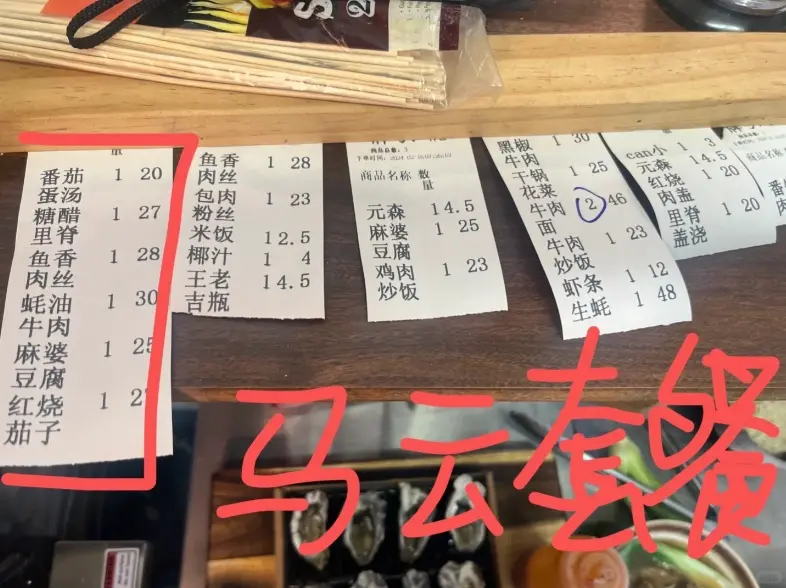 量
番茄 1 20
蛋汤
糖醋 1 27
里脊
鱼香 1 28
肉丝
蚝油 1 30
牛肉
麻婆 1 25
豆腐
红烧 1
茄子
鱼香 1 28
肉丝
包肉 1 23
粉丝
米饭 1 2.5
椰汁 1 4
王老 1 4.5
吉瓶
商品总数:
下单时间:
商品名称 数
量
元森 1 4.5
麻婆 1 25
豆腐
鸡肉 1 23
炒饭
黑椒 1 30
牛肉
干锅 1 25
花菜
牛肉 2 46
面
牛肉 1 23
炒饭
虾条 1 12
生蚝 1 48
can小 1 3
元森 1 4.5
红烧 1 20
肉盖
里脊 1 20
盖浇
马云套餐